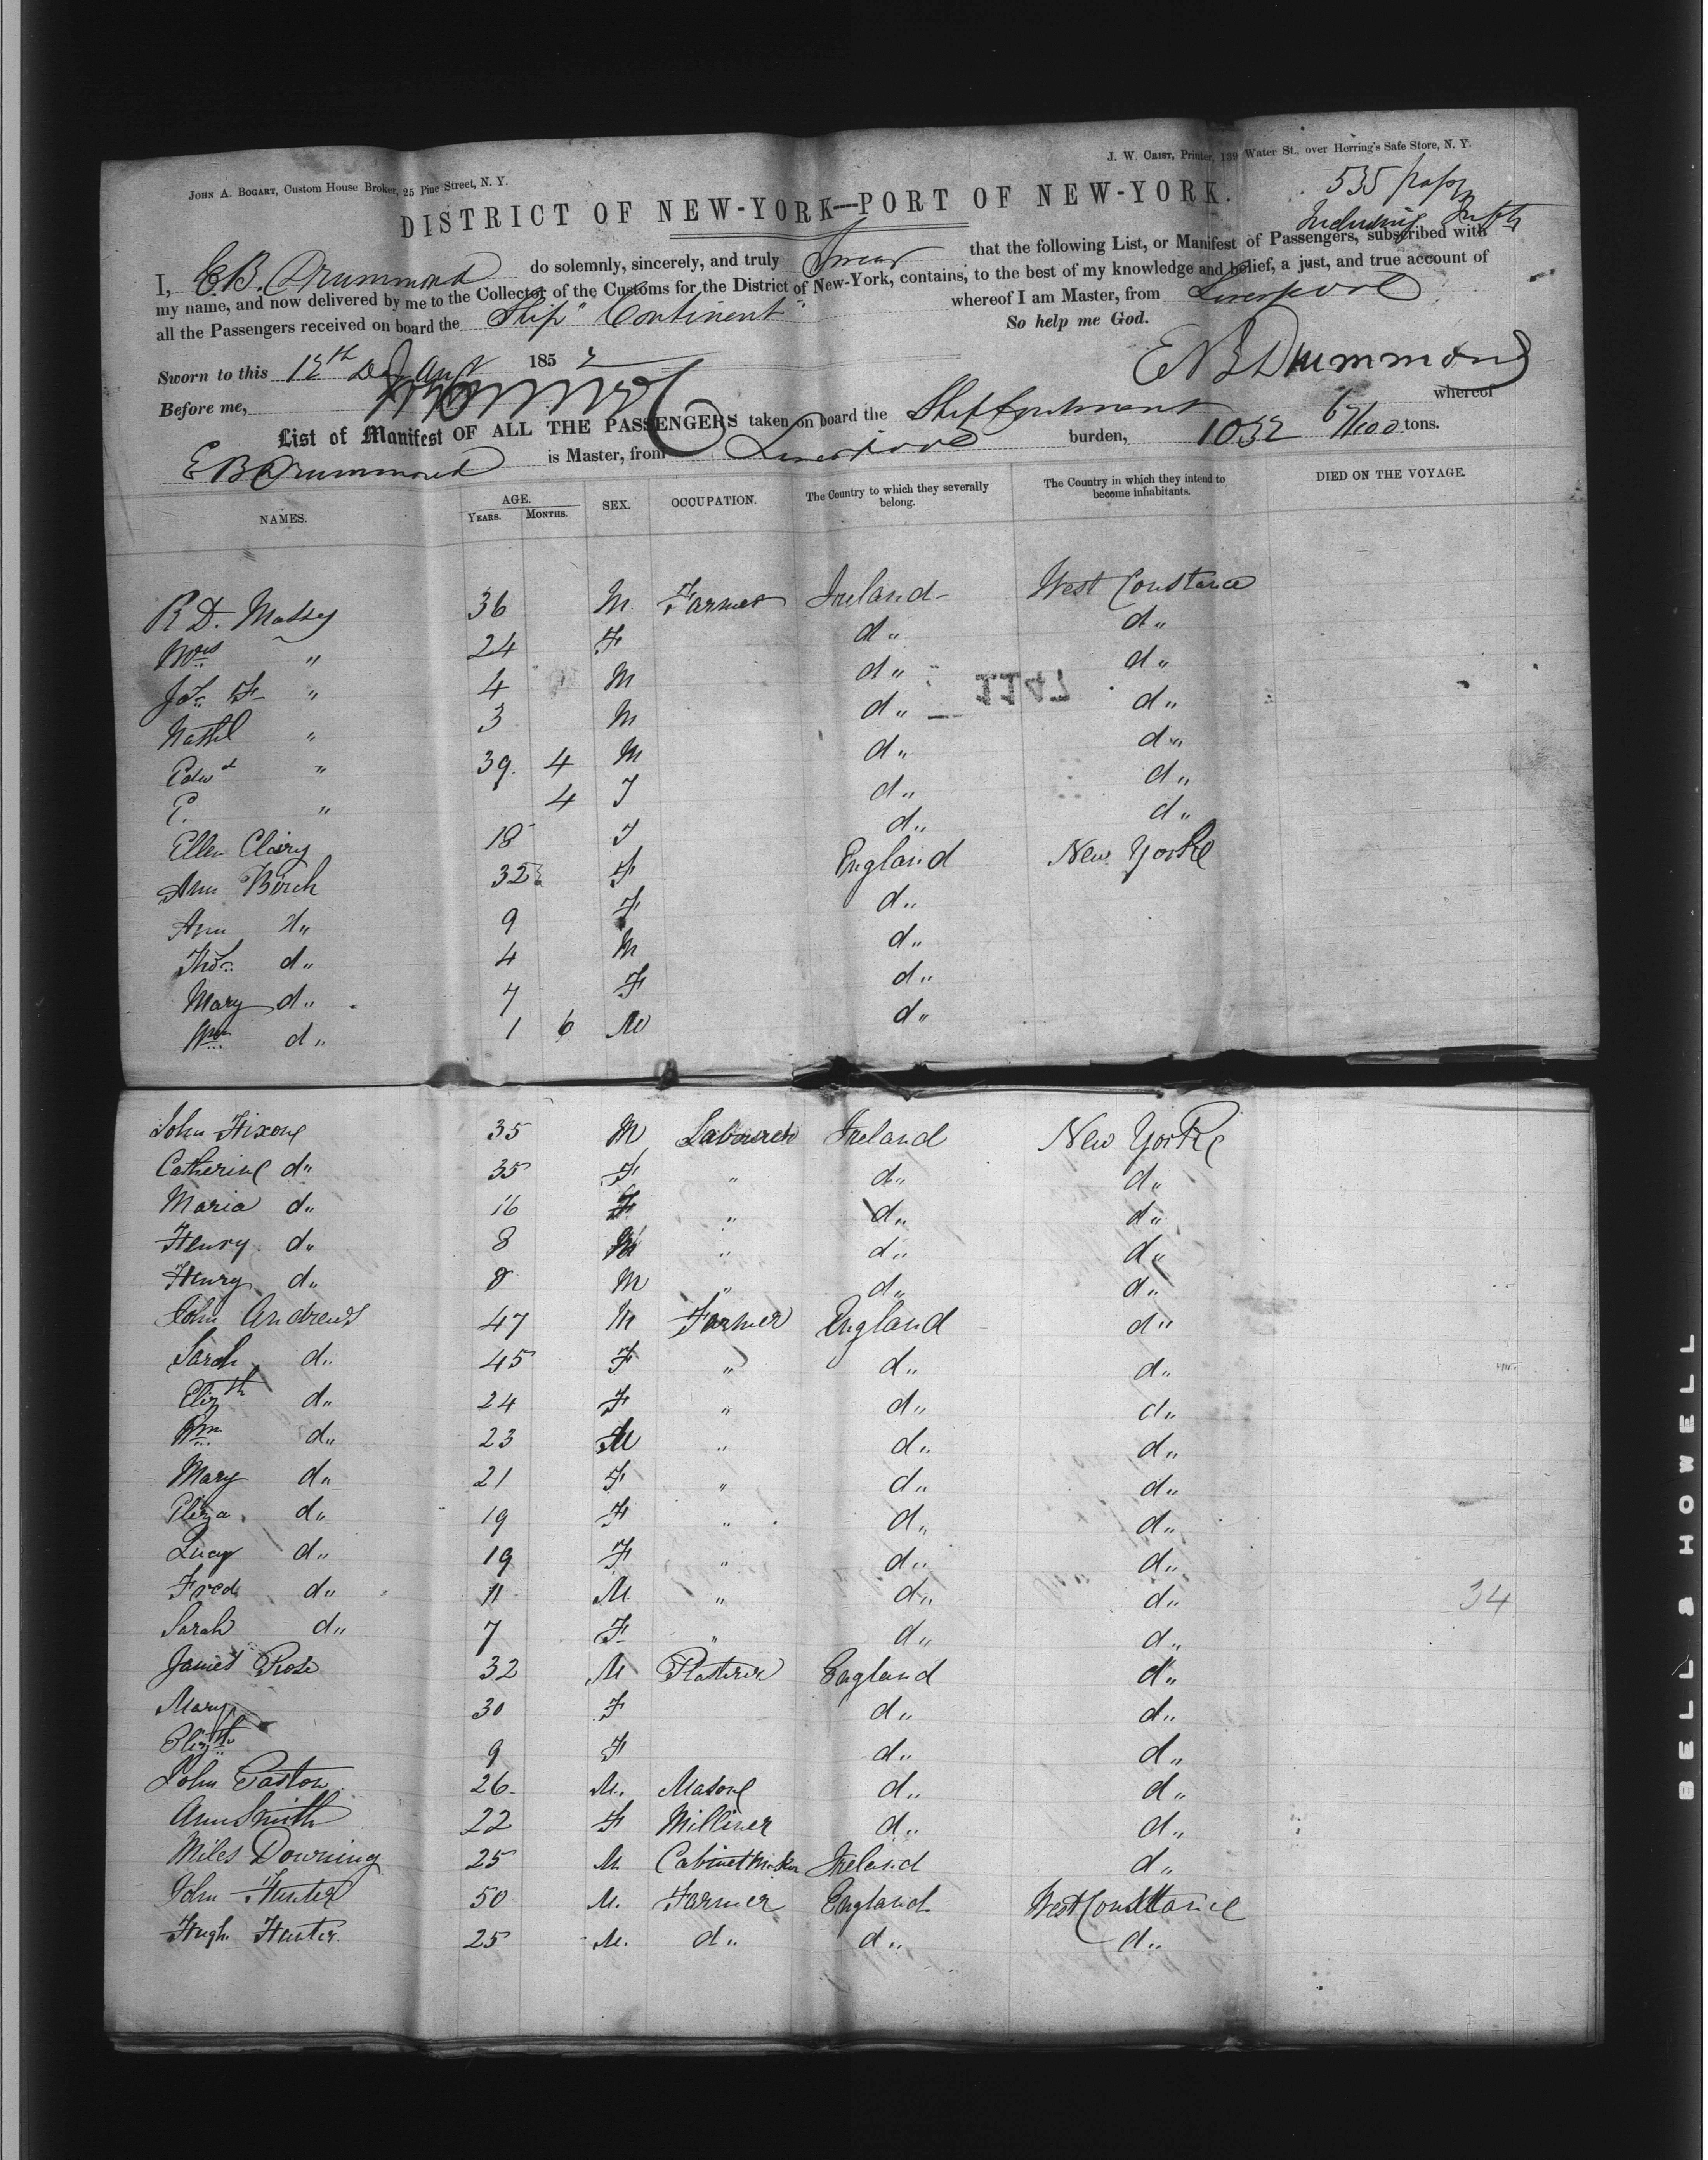 John A. Bogart, Custom House Broker, 25 Pine Street, N. Y.
J. W. Crist, Printer, 139 Water St., over Herring's Safe Store, N. Y.
535 pass
Including Infts
DISTRICT OF NEW-YORK—PORT OF NEW-YORK.
I, E. B. Drummond do solemnly, sincerely, and truly Swear that the following List, or Manifest of Passengers, subscribed with
my name, and now delivered by me to the Collector of the Customs for the District of New-York, contains, to the best of my knowledge and belief, a just, and true account of
all the Passengers received on board the Ship "Continent" whereof I am Master, from Liverpool
So help me God.
Sworn to this 12th Day 1852
E B Drummond
Before me,
List of Manifest OF ALL THE PASSENGERS taken on board the Ship Continent whereof
E B Drummond is Master, from Liverpool burden, 1032 67/100 tons.
NAMES. AGE. YEARS. MONTHS. SEX. OCCUPATION. The Country to which they severally belong. The Country in which they intend to become inhabitants. DIED ON THE VOYAGE.
R D. Massy 36 M. Farmer Ireland West Constance
Mrs " 24 F d" d"
Jos F " 4 M d" d"
1147
Nathl " 3 M d" d"
Edwd " 39 4 M d" d"
E. " 4 F d" d"
Ellen Clary 18 F d" d"
Ann Birch 32 F England New York
Ann d" 9 F d"
Thos d" 4 M d"
Mary d" 7 F d"
Wm d" 1 6 M d"
John Hixone 35 M Labourer Ireland New York
Catherine d" 35 F " d" d"
Maria d" 16 F " d" d"
Henry d" 8 M " d" d"
Henry d" 8 M " d" d"
John Andrews 47 M Farmer England d"
Sarah d" 45 F " d" d"
Elizth d" 24 F " d" d"
Wm d" 23 M " d" d"
Mary d" 21 F " d" d"
Eliza d" 19 F " d" d"
Lucy d" 19 F " d" d"
Fred d" 11 M " d" d"
34
Sarah d" 7 F " d" d"
James Rose 32 M Plasterer England d"
Mary 30 F d" d"
Elizth 9 F d" d"
John Paston 26 M. Masone d" d"
Ann Smith 22 F Milliner d" d"
Miles Downing 25 M. Cabinet Maker Ireland d"
John Hunter 50 M. Farmer England West Constance
Hugh Hunter 25 M. d" d" d"
BELL & HOWELL